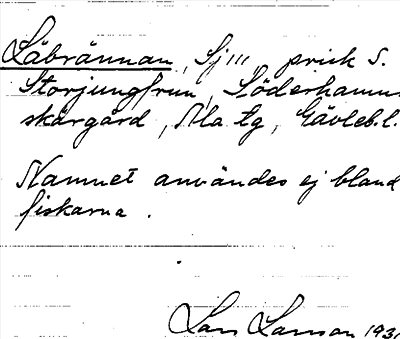 Låbrännan, Sj''', prick S.
Storjungfrun, Söderhamns
skärgård, Ala tg, Gävleb.l.
Namnet användes ej bland
fiskarna.
Lars Larsson 193